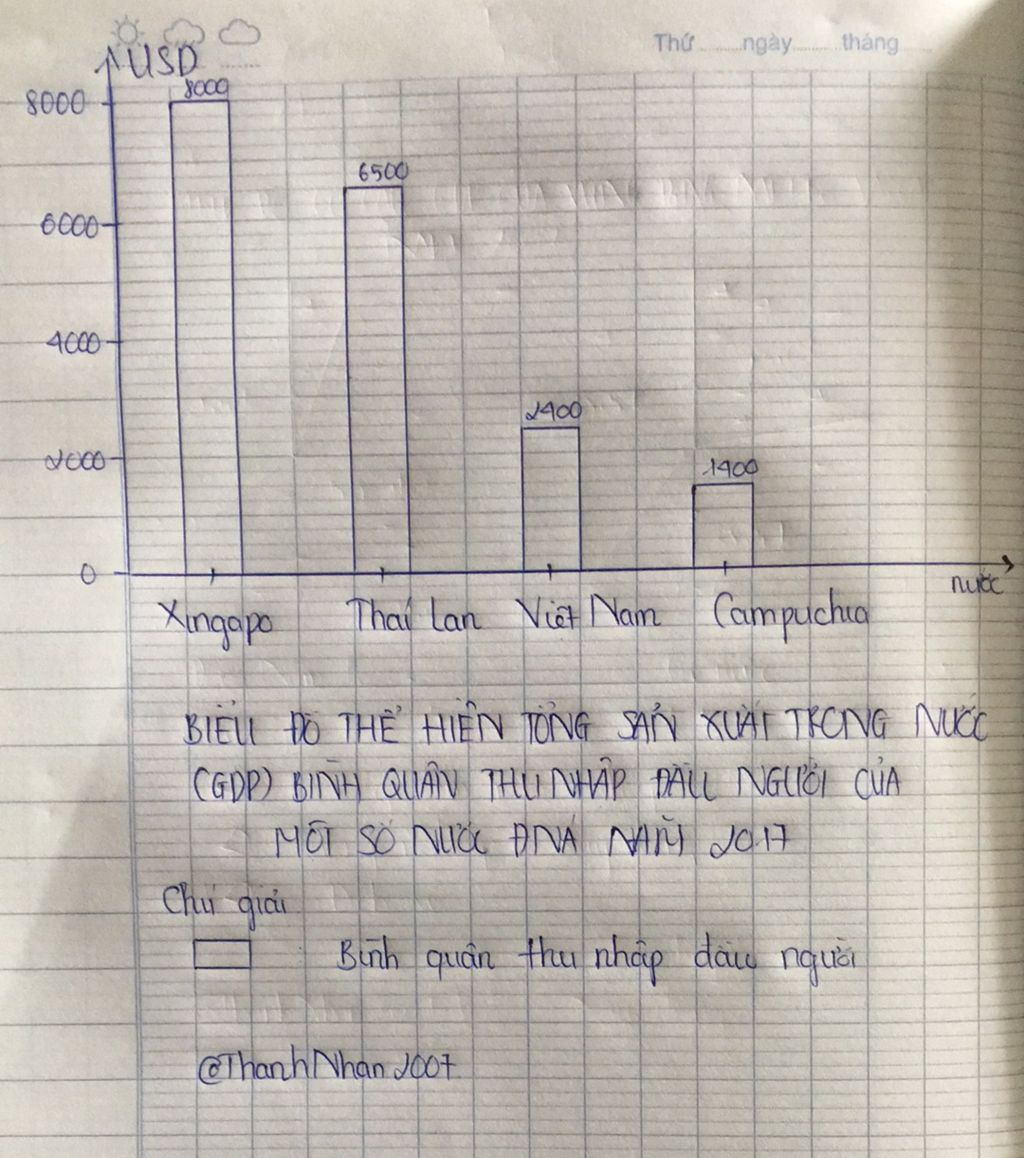 Thứ ngày tháng
USD
8000
8000
6500
6000
4000
2400
2000
1400
0
nước
Xingapo Thái Lan Việt Nam Campuchia
BIỂU ĐỒ THỂ HIỆN TỔNG SẢN XUẤT TRONG NƯỚC
(GDP) BÌNH QUÂN THU NHẬP ĐẦU NGƯỜI CỦA
MỘT SỐ NƯỚC ĐNÁ NĂM 2017
Chú giải
: Bình quân thu nhập đầu người
@ThanhNhan2007